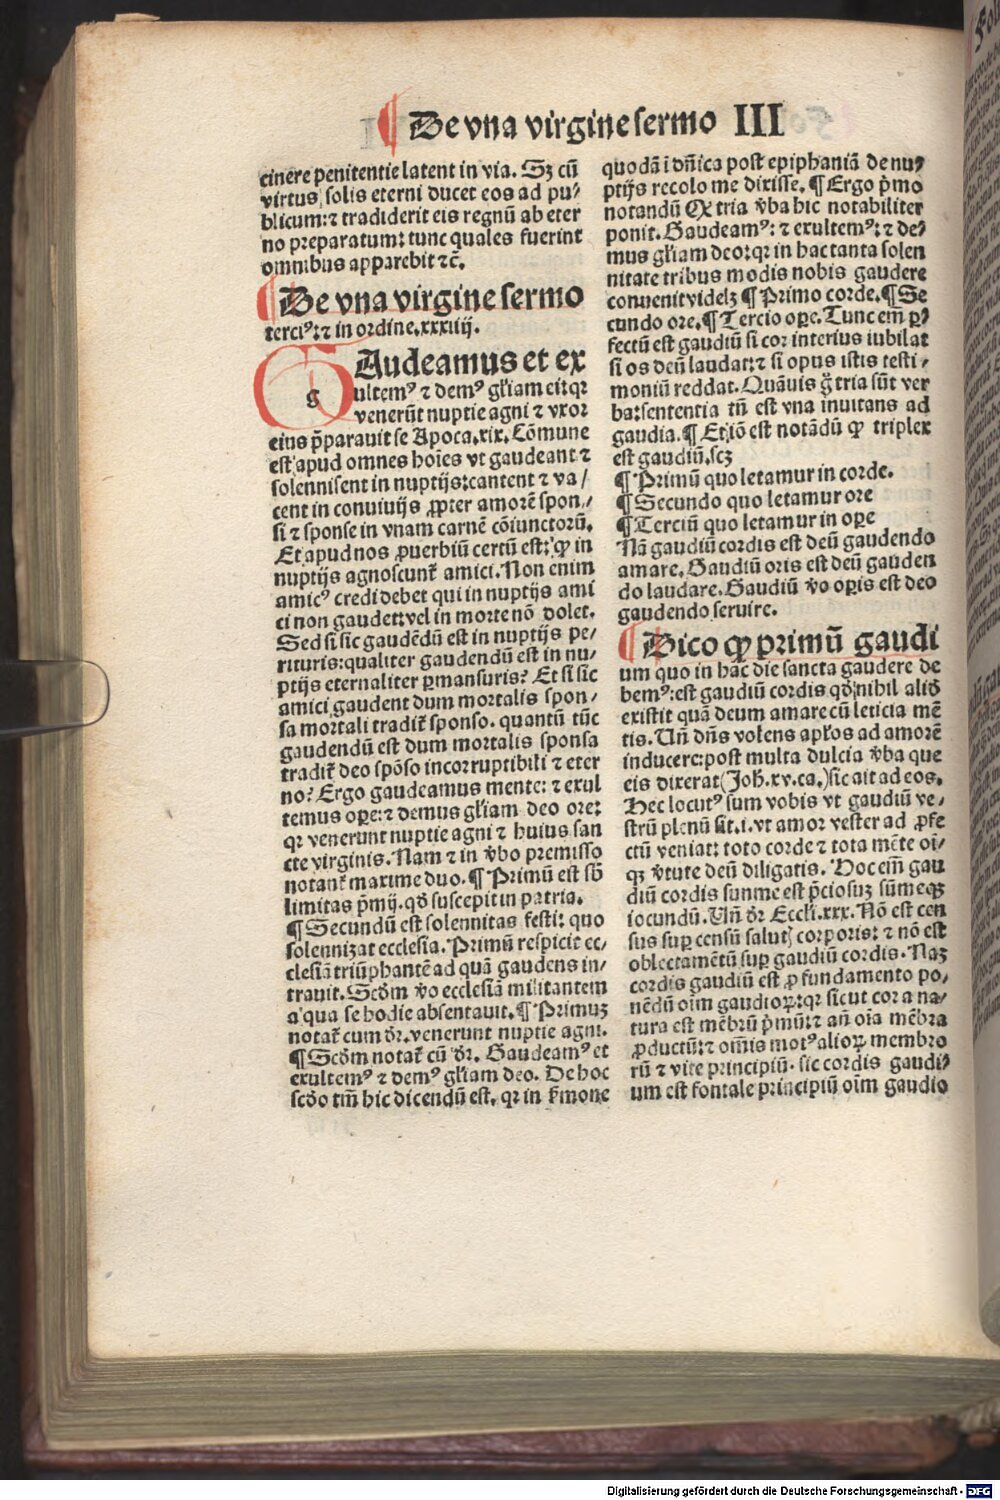 ¶ De vna virgine sermo III
cinere penitentie latent in via. Sꝫ cū
virtus solis eterni ducet eos ad pu⸗
blicum: ⁊ tradiderit eis regnū ab eter
no preparatum: tunc quales fuerint
omnibus apparebit ⁊c̄.
¶ De vna virgine sermo
terciꝰ: ⁊ in ordine. xxxiiij.
gAudeamus et ex
ultemꝰ ⁊ demꝰ gl̄iam ei: qꝛ
venerūt nuptie agni ⁊ vxoꝛ
eius p̄parauit se Apoca. xix. Cōmune
est apud omnes hoīes vt gaudeant ⁊
solennisent in nuptijs: cantent ⁊ va/
cent in conuiuijs ꝓpter amorē spon⸗
si ⁊ sponse in vnam carnē cōiunctorū.
Et apud nos ꝓuerbiū certū est: ꝙ in
nuptijs agnoscunt̄ amici. Non enim
amicꝰ credi debet qui in nuptijs ami
ci non gaudet: vel in morte nō dolet.
Sed si sic gaudēdū est in nuptijs pe⸗
rituris: qualiter gaudendū est in nu⸗
ptijs eternaliter ꝑmansuris? Et si sic
amici gaudent dum mortalis spon⸗
sa mortali tradit̄ sponso. quantū tūc
gaudendū est dum mortalis sponsa
tradit̄ deo spōso incorruptibili ⁊ eter
no? Ergo gaudeamus mente: ⁊ exul
temus oꝑe: ⁊ demus gl̄iam deo ore:
qꝛ venerunt nuptie agni ⁊ huius san
cte virginis. Nam ⁊ in v̄bo premisso
notant̄ maxime duo. ¶ Primū est sb̄
limitas p̄mij. qd̄ suscepit in patria.
¶ Secundū est solennitas festi: quo
solennizat ecclesia. Primū respicit ec⸗
clesiā triūphantē ad quā gaudens in⸗
trauit. Scd̄m v̄o ecclesiā militantem
a qua se hodie absentauit. ¶ Primuꝫ
notat̄ cum dꝛ. venerunt nuptie agni.
¶ Scd̄m notat̄ cū dꝛ. Gaudeamꝰ et
exultemꝰ ⁊ demꝰ gl̄iam deo. De hoc
scd̄o tm̄ hic dicendū est. qꝛ in s̄mone
quodā ī dn̄ica post epiphaniā de nu⸗
ptijs recolo me dixisse. ¶ Ergo p̄mo
notandū Qꝙ tria v̄ba hic notabiliter
ponit. Gaudeamꝰ: ⁊ exultemꝰ: ⁊ de⸗
mus gl̄iam deo: qꝛ in hac tanta solen
nitate tribus modis nobis gaudere
conuenit videlꝫ ¶ Primo corde. ¶ Se
cundo ore. ¶ Tercio oꝑe. Tunc em̄ ꝑ⸗
fectū est gaudiū si cor interius iubilat
si os deū laudat: ⁊ si opus istis testi⸗
moniū reddat. Quāuis g̊ tria sūt ver
ba: sententia tn̄ est vna inuitans ad
gaudia. ¶ Et iō est notādū ꝙ triplex
est gaudiū. scꝫ
¶ Primū quo letamur in corde.
¶ Secundo quo letamur ore
¶ Terciū quo letamur in oꝑe
Nā gaudiū cordis est deū gaudendo
amare. Gaudiū oris est deū gauden
do laudare. Gaudiū v̄o oꝑis est deo
gaudendo seruire.
¶ Dico ꝙ primū gaudi
um quo in hac die sancta gaudere de
bemꝰ: est gaudiū cordis qd̄ nihil aliō
existit quā deum amare cū leticia mē
tis. Un̄ dn̄s volens apl̄os ad amorē
inducere: post multa dulcia v̄ba que
eis dixerat (Joh̄. xv. ca.) sic ait ad eos.
Hec locutꝰ sum vobis vt gaudiū ve⸗
strū plenū sit. i. vt amor vester ad ꝓfe
ctū veniat: toto corde ⁊ tota mēte oī⸗
qꝫ v̄tute deū diligatis. Hoc em̄ gau
diū cordis summe est p̄ciosuꝫ sūmeqꝫ
iocundū. Un̄ dꝛ Eccl̄i. xxx. Nō est cen
sus suꝑ censū salutꝭ corporis: ⁊ nō est
oblectamētū suꝑ gaudiū cordis. Naꝫ
cordis gaudiū est ꝓ fundamento po⸗
nēdū oīm gaudioꝝ: qꝛ sicut cor a na⸗
tura est mēbrū p̄mū: ⁊ añ oīa mēbra
ꝓductū: ⁊ om̄is motꝰ alioꝝ membro
rū ⁊ vite principiū. sic cordis gaudi⸗
um est fontale principiū oīm gaudio
Digitalisierung gefördert durch die Deutsche Forschungsgemeinschaft - DFG